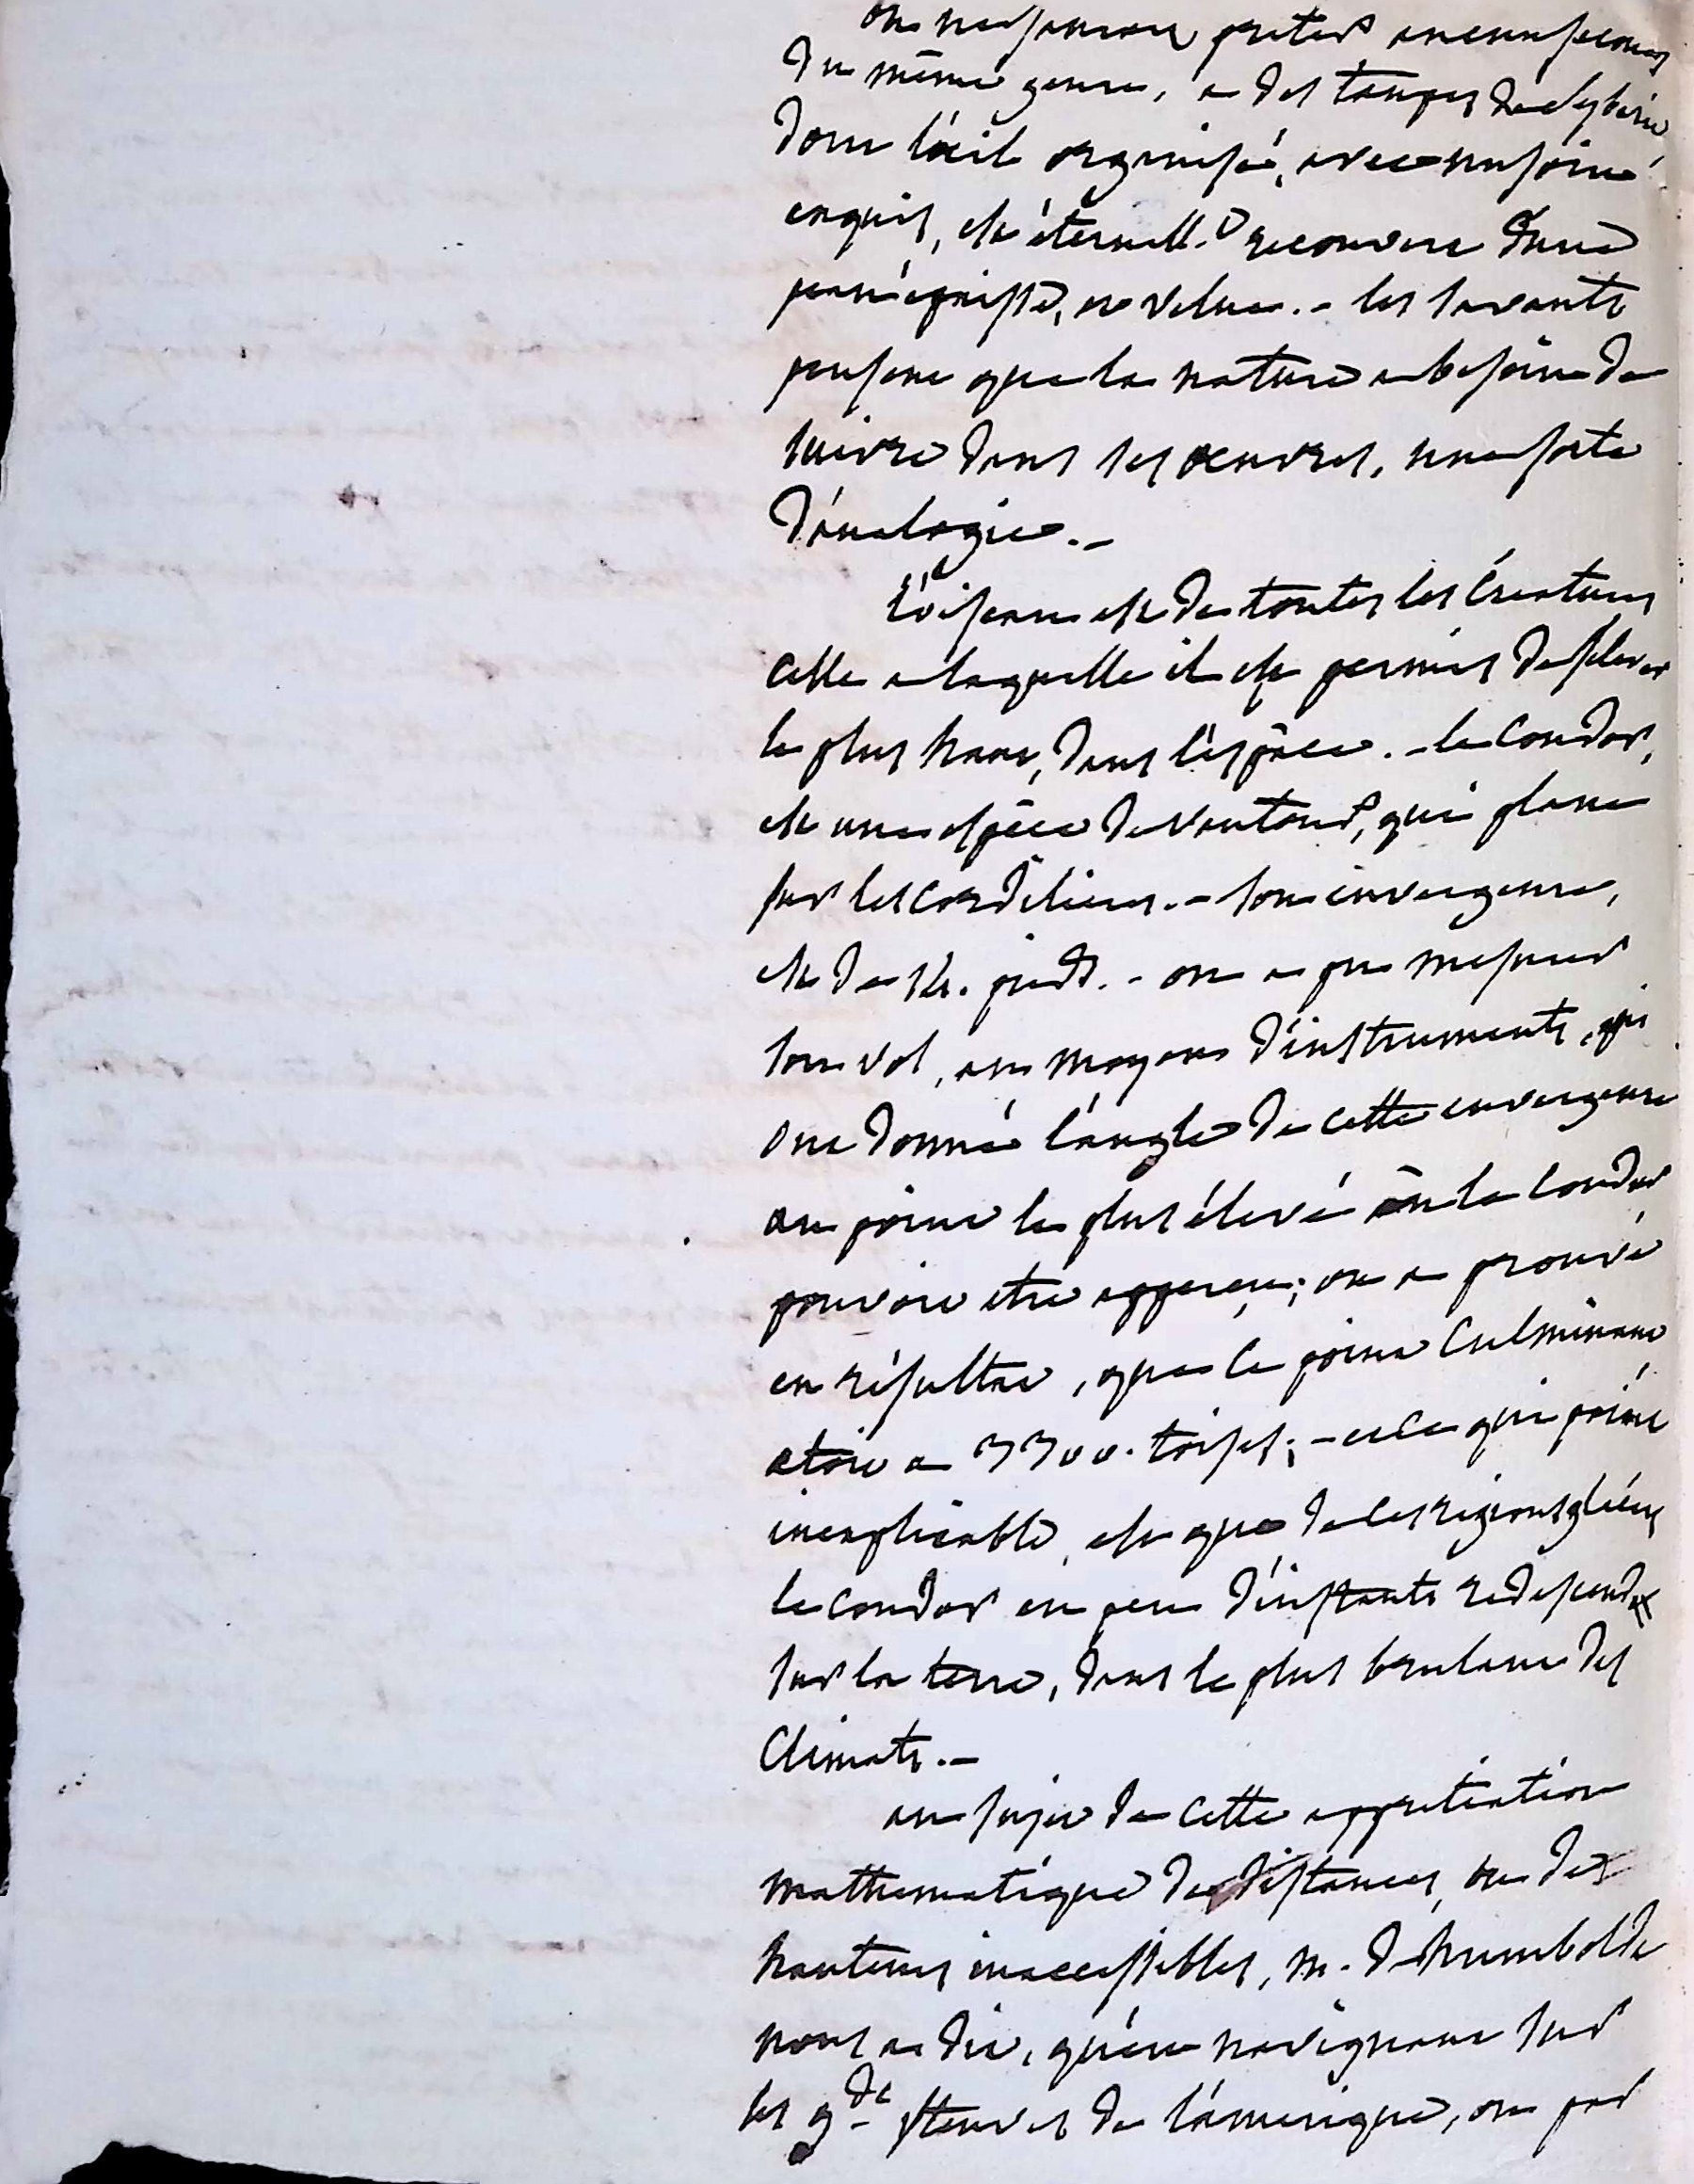 on ne sauroit preter aucun secours
du même genre, a des taupes de Syberie,
dont l'œil organisé, avec un soin
exquis, est éternell.t recouvert d'une
peau épaisse, et velue. - les savants
pensent que la nature a besoin de
suivre dans ses œuvres, une sorte
d'analogie. -
L'oiseau est de toutes les Créatures
celle a laquelle il est permis de s'élever
le plus haut, dans l'espace. - le Condor,
est une espèce de vautour, qui plane
sur les cordelieres. - son envergure,
est de 14. pieds. - on a pu mesurer
son vol, au moyen d'instruments, qui
ont donné l'angle de cette envergure
au point le plus élevé où le Condor
pouvoit etre apperçu; on a prouvé
en résultat, que le point Culminant
etoit a 3300. toises; - et ce qui paroit
inexplicable, est que de ces regions glacées
le Condor en peu d'instants redescend
sur la terre, dans le plus brulant des
Climats. -
au sujet de cette appretiation
mathematique de distances, ou des
hauteurs inaccessibles, m. de humboldt
nous a dit, qu'en navigant sur
les g.ds fleuves de l'amerique, on par